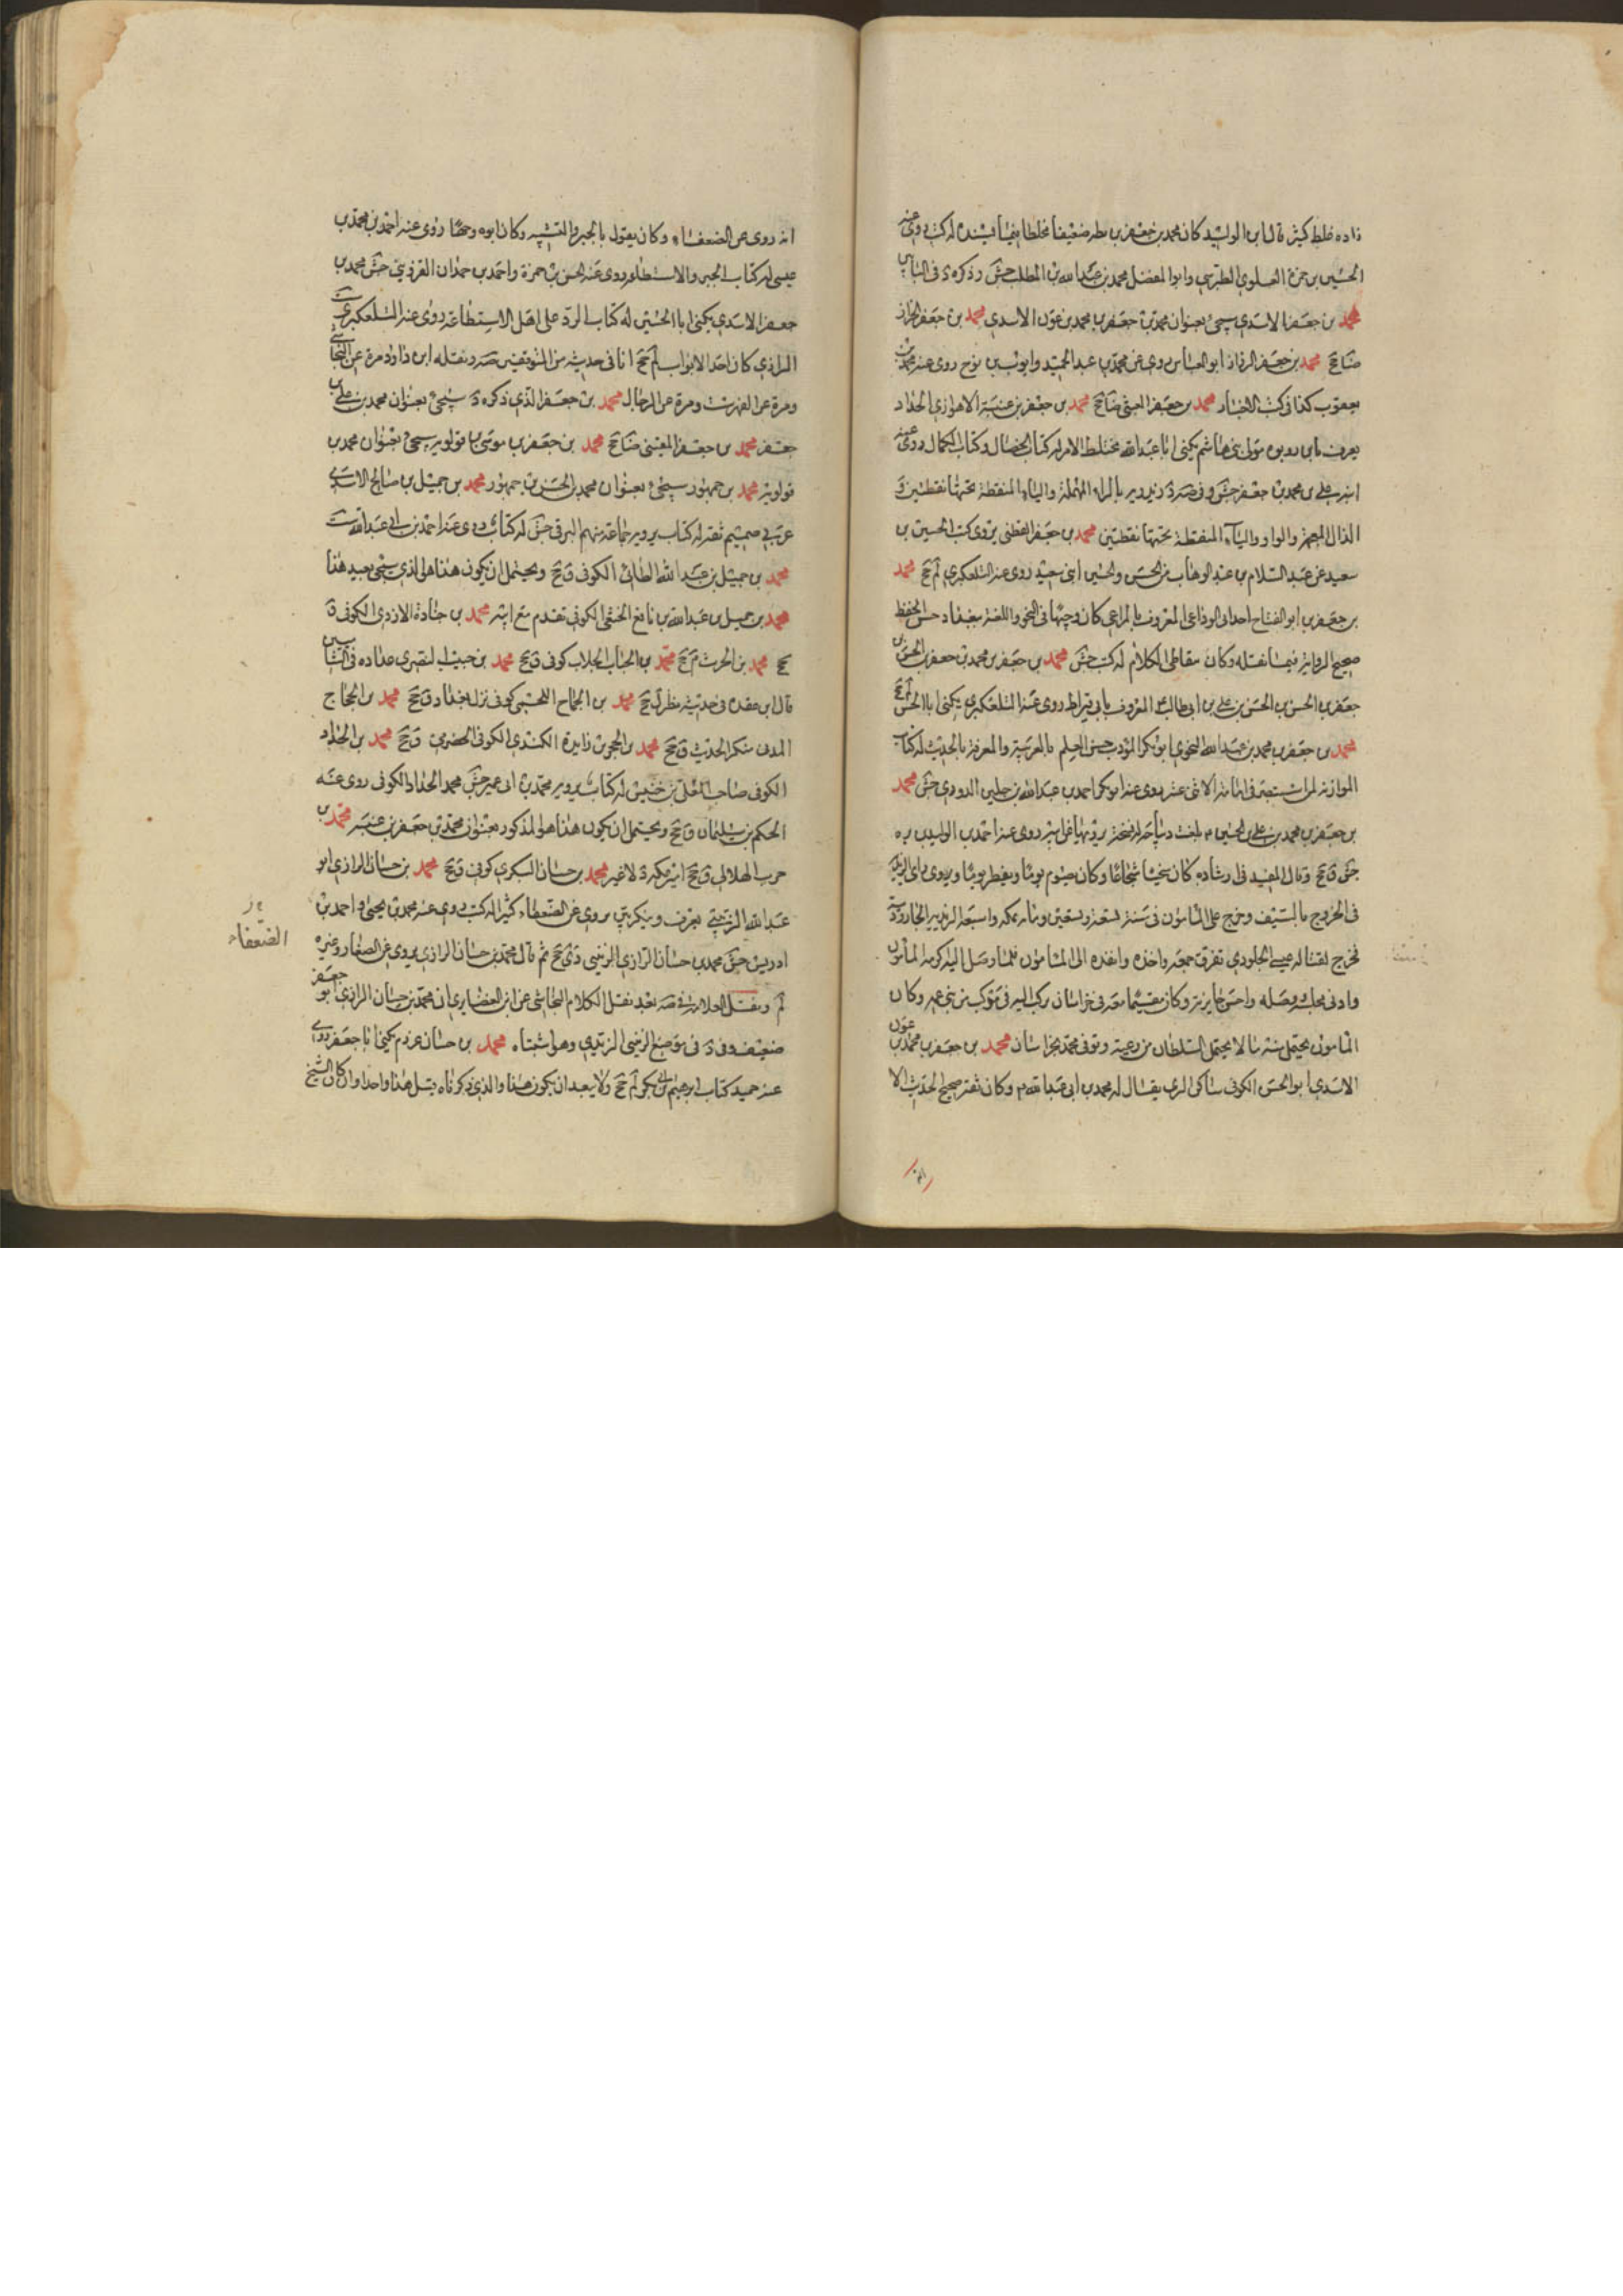 زاده خلط كثير قال ابن الوليد كان محمد بن جعفر بن بطه ضعيفا مخلطا فيما يسنده له كتب روى عنه
الحسين بن حمزة العلوي الطبري وابو المفضل محمد بن عبد الله بن المطلب جش وذكره د في البابين
محمد بن جعفر الاسدي سيجئ بعنوان محمد بن جعفر بن محمد بن عون الاسدي محمد بن جعفر الخزاز
ضا جخ محمد بن جعفر الرزاز ابو العباس روى عن محمد بن عبد الحميد وايوب بن نوح روى عنه محمد بن
يعقوب كذا في كتب الاخبار محمد بن جعفر العتبى ضا جخ محمد بن جعفر بن عنبسة الاهوازي الحداد
يعرف بابن رويده مولى بني هاشم يكنى ابا عبد الله مختلط الامر له كتاب الخصال وكتاب الكمال روى عنه
ابنه علي بن محمد بن جعفر جش وفي صه ود زيدويه بالراء المهملة والياء المنقطة تحتها نقطتين و
الذال المعجمة والواو والياء المنقطة تحتها نقطتين محمد بن جعفر القطني يروى كتب الحسين بن
سعيد عن عبد السلام بن عبد الوهاب عن الحسن والحسين ابنى سعيد روى عنه التلعكبري لم جخ محمد
بن جعفر بن ابو الفتاح احداني الوذاعي المعروف بالمراغي كان وجيها في النحو واللغة ببغداد حسن الحفظ
صحيح الرواية فيما نقله وكان يتعاطى الكلام له كتب جش محمد بن جعفر بن محمد بن جعفر بن الحسن بن
جعفر بن الحسن بن الحسن بن علي بن ابي طالب ع المعروف بابي قيراط روى عنه التلعكبري يكنى ابا الحسن لم جخ
محمد بن جعفر بن محمد بن عبد الله النحوي ابو بكر المؤدب حسن العلم بالعربية والمعرفة بالحديث له كتاب
الموازنة لمن استبصر في امامة الاثنى عشر روى عنه ابو بكر احمد بن عبد الله بن جلين الدوري جش محمد
بن جعفر بن محمد بن علي بن الحسين ع يلقب ديباجه له نسخة يرويها عن ابيه روى عنه احمد بن الوليد بن برد
جش ق جخ وقال المفيد في ارشاده كان سخيا شجاعا وكان يصوم يوما ويفطر يوما ويرى راى الزيدية
في الخروج بالسيف وخرج على المامون في سنة تسعة وتسعين ومائه بمكه واتبعه الزيدية الجارودية
فخرج لقتاله عيسى الجلودي ففرق جمعه واخذه وانفذه الى المامون فلما وصل اليه اكرمه المامون
وادنى مجلسه ووصله واحسن جايزته وكان مقيما معه في خراسان يركب اليه في موكب من بني عمه وكان
المامون يحتمل منه ما لا يحتمل السلطان من رعيته وتوفى محمد بخراسان محمد بن جعفر بن محمد بن عون
الاسدي ابو الحسن الكوفي ساكن الري يقال له محمد بن ابي عبد الله وكان ثقة صحيح الحديث الا
انه
انه روى عن الضعفاء وكان يقول بالجبر والتشبيه وكان ابوه وجها روى عنه احمد بن محمد بن
عيسى له كتاب الجبر والاستطاعه روى عنه الحسن بن حمزة واحمد بن حمدان القزويني جش محمد بن
جعفر الاسدي يكنى ابا الحسين له كتاب الرد على اهل الاستطاعه روى عنه التلعكبري ست
الرازي كان احد الابواب لم جخ انا في حديثه من المتوقفين صه ونقله ابن داود مرة عن النجاشي
ومرة عن الفهرست ومرة عن الرجال محمد بن جعفر الذي ذكره د سيجئ بعنوان محمد بن علي بن
جعفر محمد بن جعفر المقبنى ضا جخ محمد بن جعفر بن موسى بن قولويه سيجئ بعنوان محمد بن
قولويه محمد بن جمهور سيجئ بعنوان محمد بن الحسن بن جمهور محمد بن جميل بن صالح الاسدي
عربي صميم ثقة له كتاب يرويه جماعة منهم البرقي جش له كتاب روى عنه احمد بن ابي عبد الله ست
محمد بن جميل بن عبد الله الطائى الكوفي ق جخ ويحتمل ان يكون هذا هو الذي سيجئ بعيد هذا
محمد بن جميل بن عبد الله بن نافع الخثعمي الكوفي تقدم مع ابيه محمد بن جنادة الازدي الكوفي ق
جخ محمد بن الحرث م جخ محمد بن الحباب الجلاب كوفي ق جخ محمد بن حبيب النصري عداده في الشاميين
قال ابن عقده في حديثه نظر ل جخ محمد بن الحجاج اللخمي كوفي نزل بغداد ق جخ محمد بن الحجاج
المدنى منكر الحديث ق جخ محمد بن الحجر بن زايدة الكندي الكوفي الحضرمي ق جخ محمد بن الحداد
الكوفي صاحب المعلى بن خنيس له كتاب يرويه محمد بن ابي عمير جش محمد الحداد الكوفي روى عنه
الحكم بن سليمان ق جخ ويحتمل ان يكون هذا هو المذكور بعنوان محمد بن جعفر بن عنبسه محمد بن
حرب الهلالي ق جخ اسير مكبرة لا غير محمد بن حسان البكري كوفي ق جخ محمد بن حسان الرازي ابو
عبد الله الزينبي يعرف وينكر بين يروى عن الضعفاء كثيرا له كتب روى عنه محمد بن يحيى واحمد بن
ادريس جش محمد بن حسان الرازي الزينبي دى جخ ثم قال محمد بن حسان الرازي يروى عن الصفار وغيره
لم ونقل العلامة في صه بعد نقل الكلام النجاشي عن ابن الغضايري ان محمد بن حسان الرازي ابو جعفر
ضعيف وفي د في موضع الزينبي الزيدي وهو اشتباه محمد بن حسان عرزم يكنى ابا جعفر روى
عنه حميد كتاب ابرهيم بن ابي بكر لم جخ ولا يبعد ان يكون هذا والذي ذكرناه قبل هذا واحدا وان كان الشيخ
الضعفاء